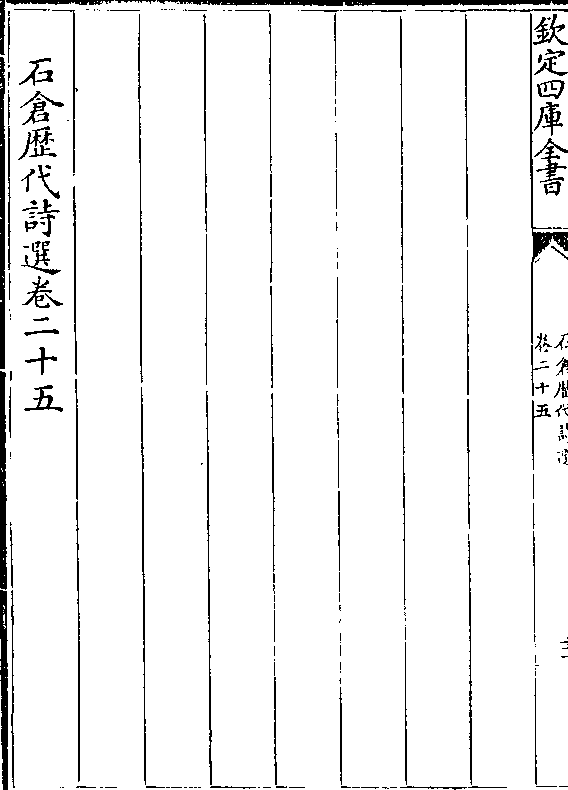 欽定四庫全書
石倉歷代詩選
卷二十五
石倉歷代詩選卷二十五